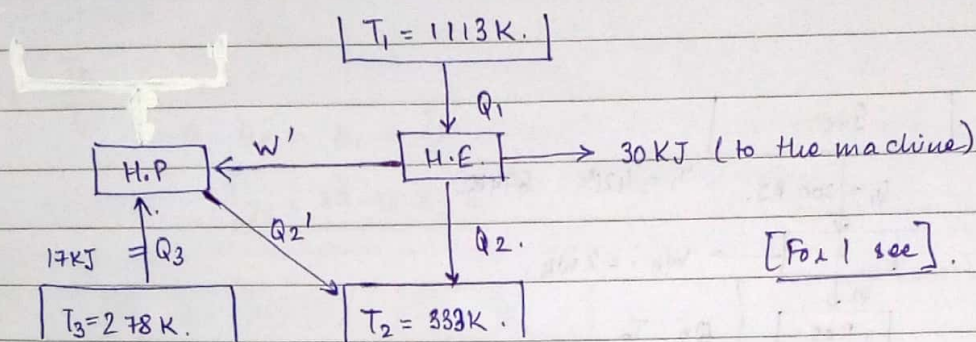 T₁ = 1113 K.
Q₁
H.P
W'
H.E
30 KJ (to the machine)
Q₂'
Q₂.
17KJ = Q₃
[For 1 sec].
T₃ = 278 K.
T₂ = 333K.